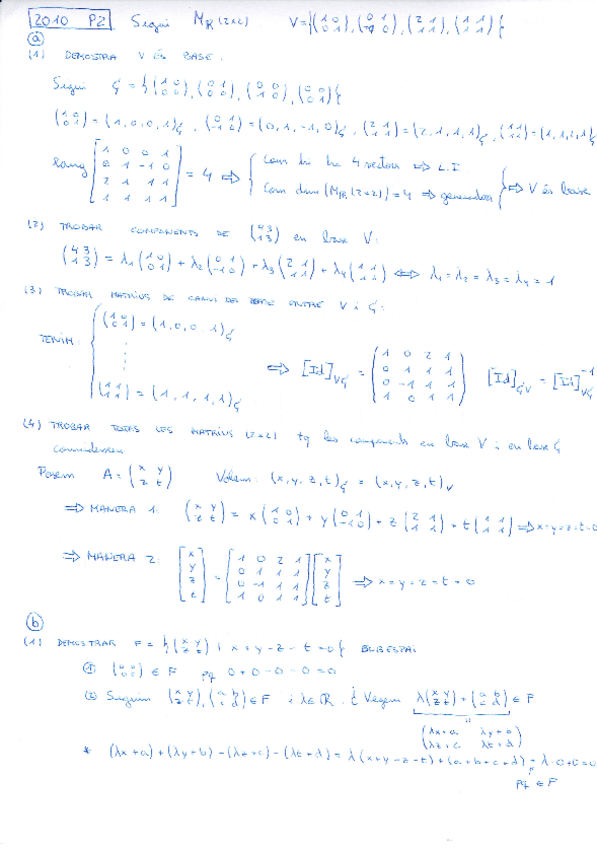 2010 P2 Sigui M_R(2x2) V={(1 0 / 0 1), (0 1 / -1 0), (2 1 / 1 1), (1 1 / 1 1)}
(a)
(1) DEMOSTRA V ÉS BASE.
Sigui G = {(1 0 / 0 0), (0 1 / 0 0), (0 0 / 1 0), (0 0 / 0 1)}
(1 0 / 0 1) = (1, 0, 0, 1)_G, (0 1 / -1 0) = (0, 1, -1, 0)_G, (2 1 / 1 1) = (2, 1, 1, 1)_G, (1 1 / 1 1) = (1, 1, 1, 1)_G
rang [1 0 0 1 / 0 1 -1 0 / 2 1 1 1 / 1 1 1 1] = 4 ⇒ { Com hi ha 4 vectors ⇒ L.I / Com dim (M_R(2x2)) = 4 ⇒ generadors } ⇒ V és base
(2) TROBAR COMPONENTS DE (4 3 / 1 3) en base V:
(4 3 / 1 3) = λ1 (1 0 / 0 1) + λ2 (0 1 / -1 0) + λ3 (2 1 / 1 1) + λ4 (1 1 / 1 1) ⇔ λ1 = λ2 = λ3 = λ4 = 1
(3) TROBAR MATRIUS DE CANVI DE BASE ENTRE V i G:
TENIM: { (1 0 / 0 1) = (1, 0, 0, 1)_G
⋮
(1 1 / 1 1) = (1, 1, 1, 1)_G
⇒ [Id]_VG = (1 0 2 1 / 0 1 1 1 / 0 -1 1 1 / 1 0 1 1) [Id]_GV = [Id]_VG^-1
(4) TROBAR TOTES LES MATRIUS (2x2) tq les components en base V i en base G
coincideixen
Posem A = (x y / z t) Volem: (x, y, z, t)_G = (x, y, z, t)_V
⇒ MANERA 1: (x y / z t) = x (1 0 / 0 1) + y (0 1 / -1 0) + z (2 1 / 1 1) + t (1 1 / 1 1) ⇒ x=y=z=t=0
⇒ MANERA 2: [x / y / z / t] = [1 0 2 1 / 0 1 1 1 / 0 -1 1 1 / 1 0 1 1] [x / y / z / t] ⇒ x=y=z=t=0
(b)
(1) DEMOSTRAR F = {(x y / z t) : x+y-z-t=0} SUBESPAI
① (0 0 / 0 0) ∈ F pq 0+0-0-0=0
② Siguin (x y / z t), (a b / c d) ∈ F i λ∈R. Vegem λ(x y / z t) + (a b / c d) ∈ F
(λx+a λy+b / λz+c λt+d)
* (λx+a) + (λy+b) - (λz+c) - (λt+d) = λ(x+y-z-t) + (a+b+c+d) = λ·0+0=0
pq ∈ F